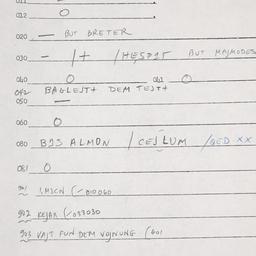 011
012 O
020 — BUT BRETER
030 — /+ /HESDET BUT MAJMODES
040 O 041 O
042 BAGLEJT+ DEM TEJT+
050 —
060 O
080 BJS ALMON / CEJLUM / QED XX
081 O
901
902 KEJAR (/033030
903 VAJT FUN DEM VOJNUNG (601